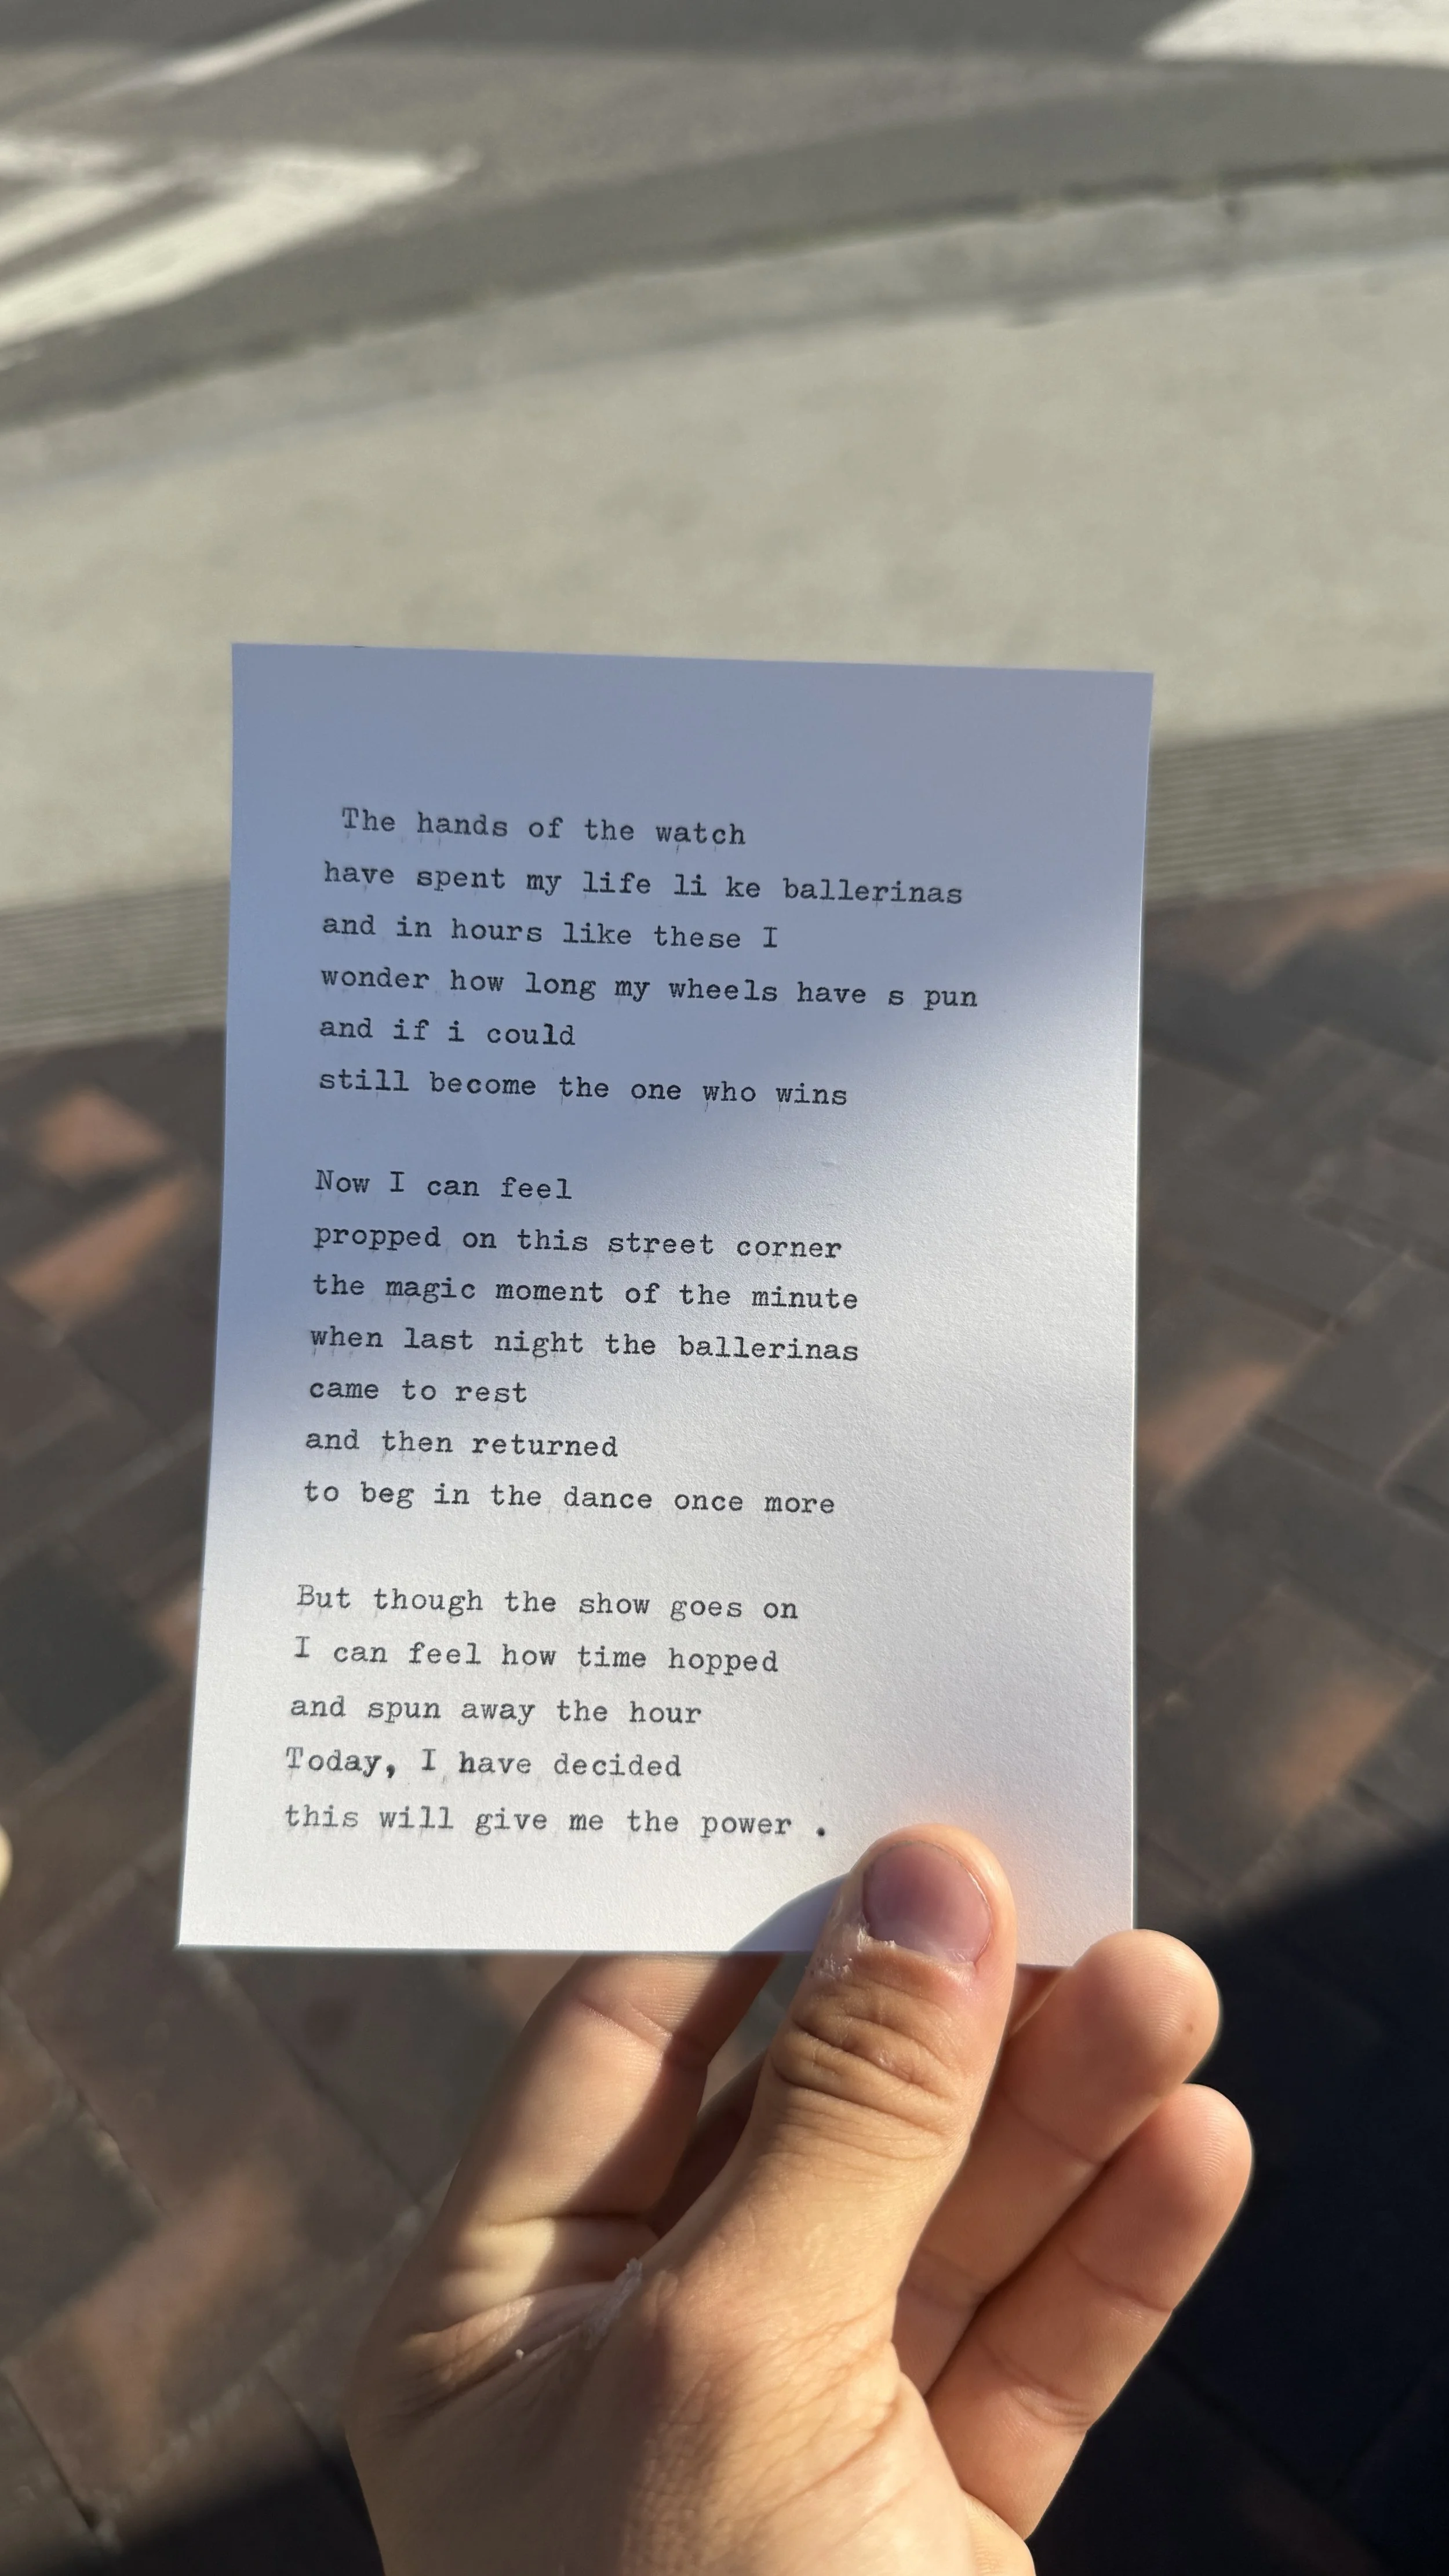 The hands of the watch
have spent my life li ke ballerinas
and in hours like these I
wonder how long my wheels have s pun
and if i could
still become the one who wins
Now I can feel
propped on this street corner
the magic moment of the minute
when last night the ballerinas
came to rest
and then returned
to beg in the dance once more
But though the show goes on
I can feel how time hopped
and spun away the hour
Today, I have decided
this will give me the power .